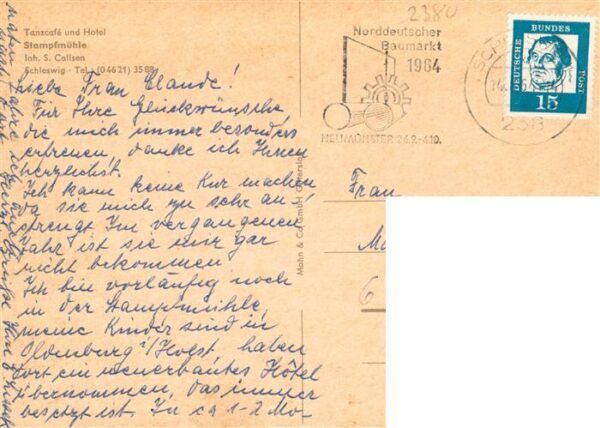 2380
Tanzcafé und Hotel
Stampfmühle
Inh. S. Callsen
Schleswig · Tel. (04621) 3588
Norddeutscher
Baumarkt
1964
NEUMÜNSTER 26.9.-4.10.
DEUTSCHE
BUNDES
POST
15
Liebe Frau Claude!
Für Ihre Glückwünsche
die mich immer besonders
erfreuen, danke ich Ihnen
herzlichst.
Ich kann keine Kur machen
da sie mich zu sehr an-
strengt Im vergangenen
Jahr ist sie mir gar
nicht bekommen
Ich bin vorläufig noch
in der Stampfmühle
meine Kinder sind in
Oldenburg i/Holst. haben
dort ein neuerbautes Hotel
übernommen, das immer
besetzt ist. In ca 1-2 Mo-
Mohn & Co GmbH
Frau
6